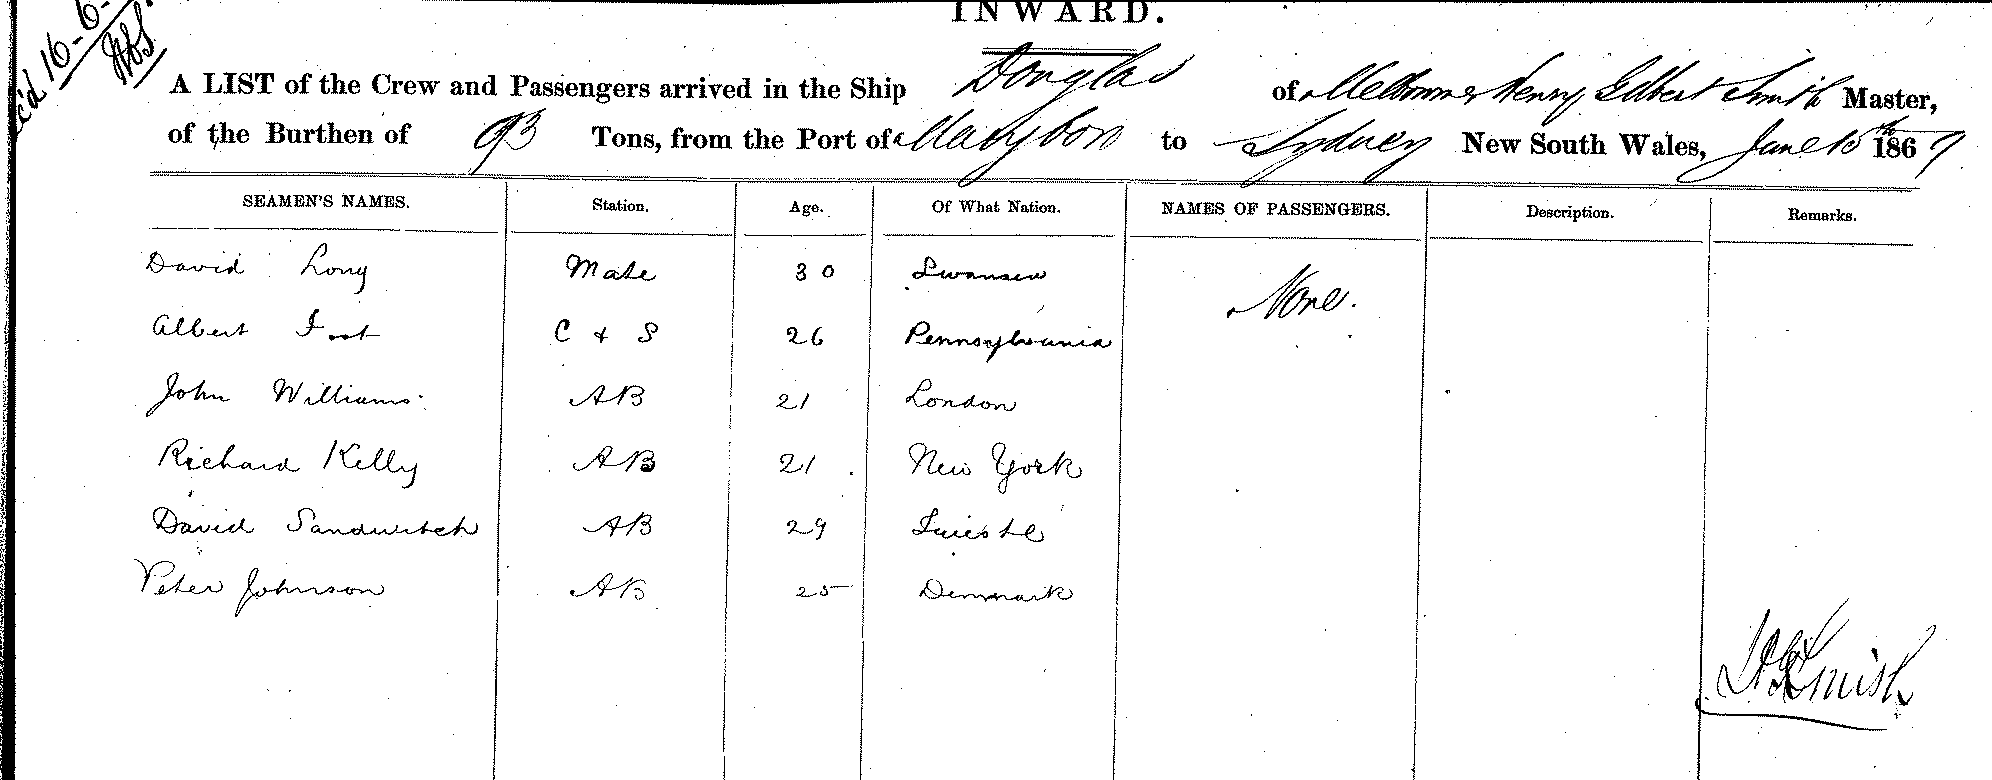 INWARD.
16-6-
A LIST of the Crew and Passengers arrived in the Ship Douglas of Melbourne Henry Gilbert Smith Master,
of the Burthen of 93 Tons, from the Port of Marybro to Sydney New South Wales, June 15th 1869
SEAMEN'S NAMES. Station. Age. Of What Nation. NAMES OF PASSENGERS. Description. Remarks.
David Long Mate 30 Swansea None.
Albert C + S 26 Pennsylvania
John Williams AB 21 London
Richard Kelly AB 21 New York
David Sandwitch AB 29 Trieste
Peter Johnson AB 25 Denmark
H G Smith